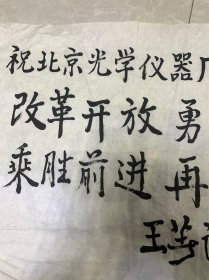 祝北京光学仪器厂
改革开放 勇
乘胜前进 再
王